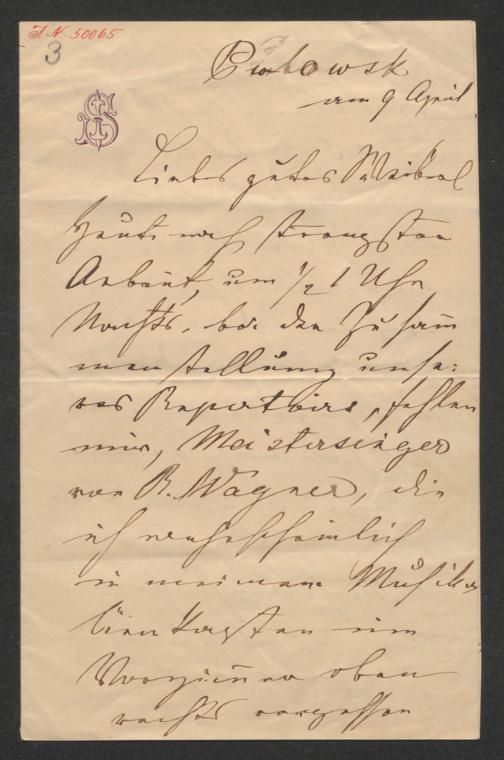 J. N. 50065
3
JS
Pawlowsk
am 9 April
Liebes gutes Weiberl
Heute nach strengster
Arbeit, um 1/2 1 Uhr
Nachts, bei der Zusam̅
menstellung unse:
res Repertoirs, fehlen
mir, Meistersinger
von R. Wagner, die
ich wahrscheinlich
in meinem Musika
lienkasten im
Vorzim̅er oben
rechts vergessen